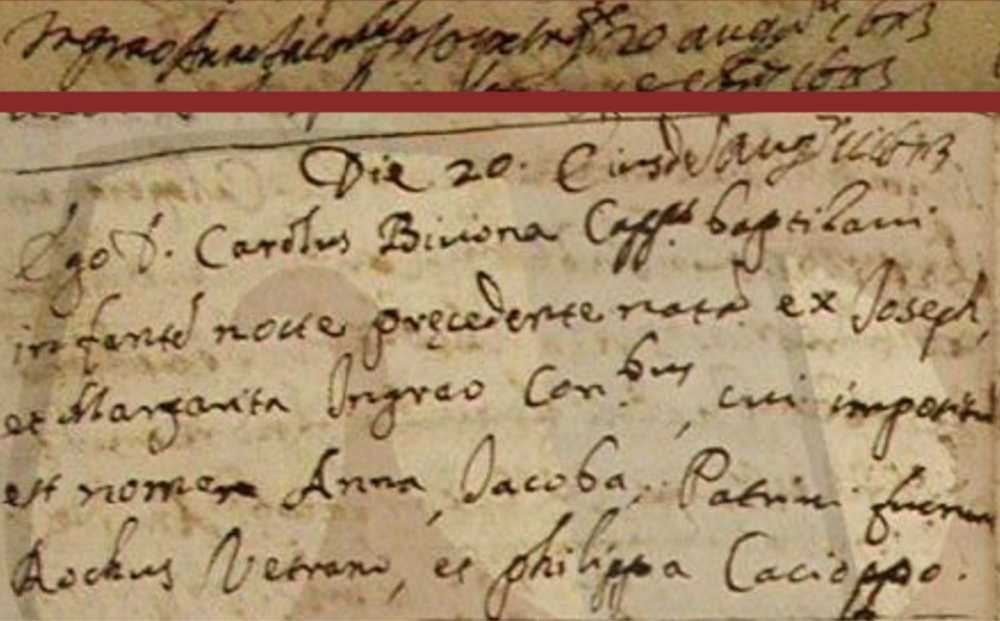 Ingrao Anna Jacoba 20 aug.ti 1613
1613
Die 20. Eiusdē aug.ti 1613
Ego D. Carolus Biuiona Capp.us baptizaui
infantē nocte precedente natā ex Joseph,
et Margarita Ingrao Con.bus, cui impositū
est nomen Anna, Jacoba. Patrini fuerun
Rochus Vetrano, et philippa Cacioppo.